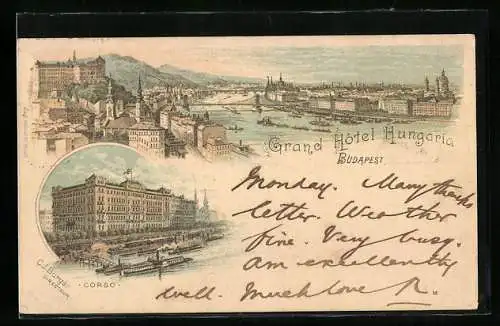 Grand Hôtel Hungaria
BUDAPEST.
Monday. Many thanks
letter. Weather
fine. Very busy.
Am excellently
well. Much love R.
- CORSO -